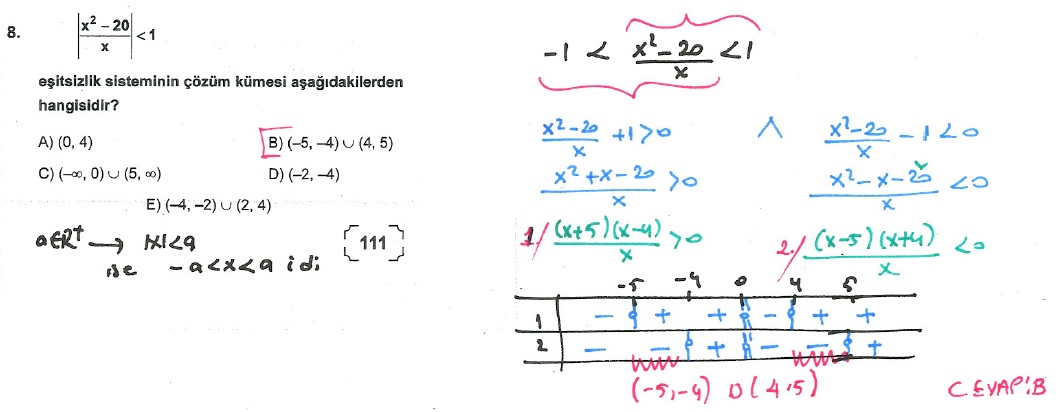 8. |x² − 20 / x| < 1
eşitsizlik sisteminin çözüm kümesi aşağıdakilerden
hangisidir?
A) (0, 4) B) (−5, −4) ∪ (4, 5)
C) (−∞, 0) ∪ (5, ∞) D) (−2, −4)
E) (−4, −2) ∪ (2, 4)
a∈R⁺ → |x|<a
ise −a<x<a idi
111
−1 < x²−20 / x < 1
x²−20 / x +1>0 ∧ x²−20 / x −1<0
x²+x−20 / x >0 x²−x−20 / x <0
1/ (x+5)(x−4) / x >0 2/ (x−5)(x+4) / x <0
−5 −4 0 4 5
1 − + + − + +
2 − − + − − +
(−5,−4) ∪ (4,5) CEVAP:B